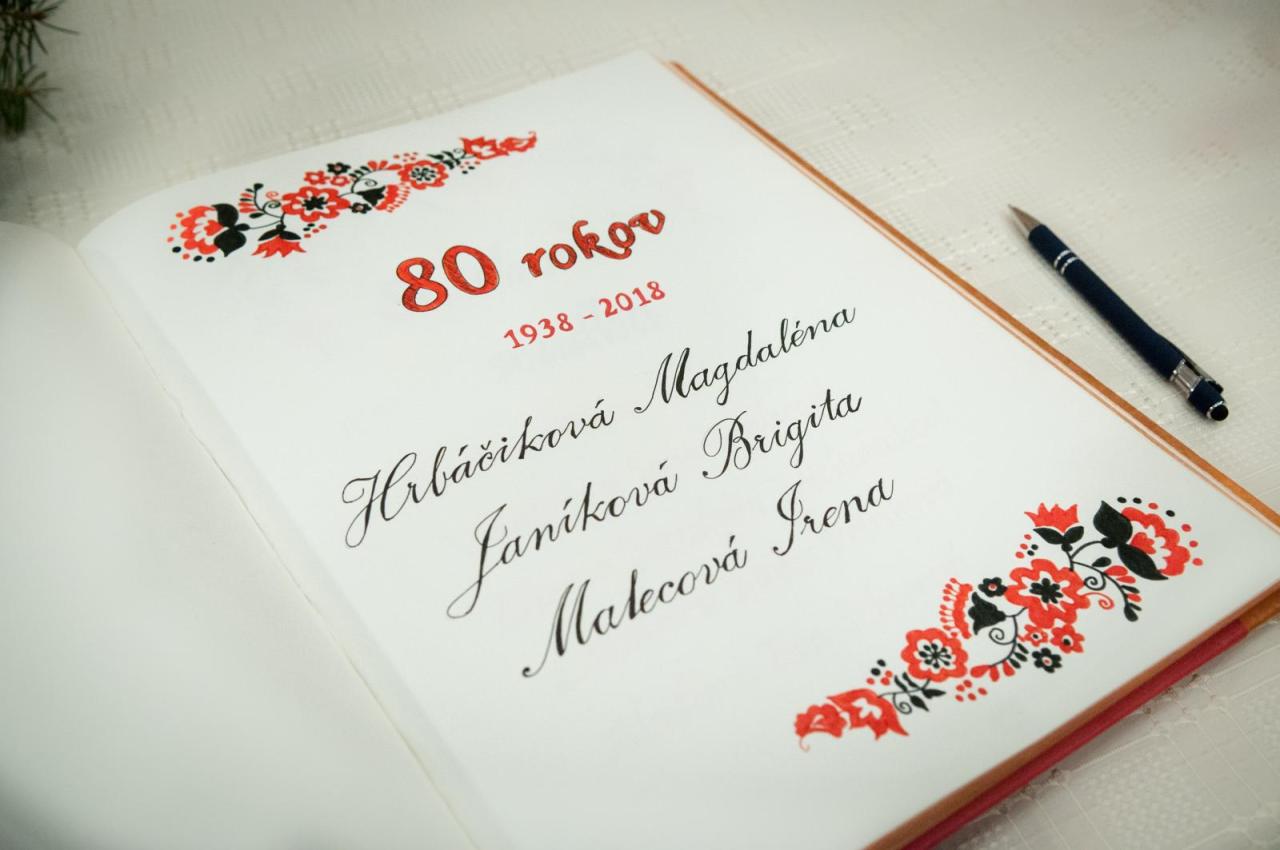 80 rokov
1938 - 2018
Hrbáčiková Magdaléna
Janíková Brigita
Matecová Irena